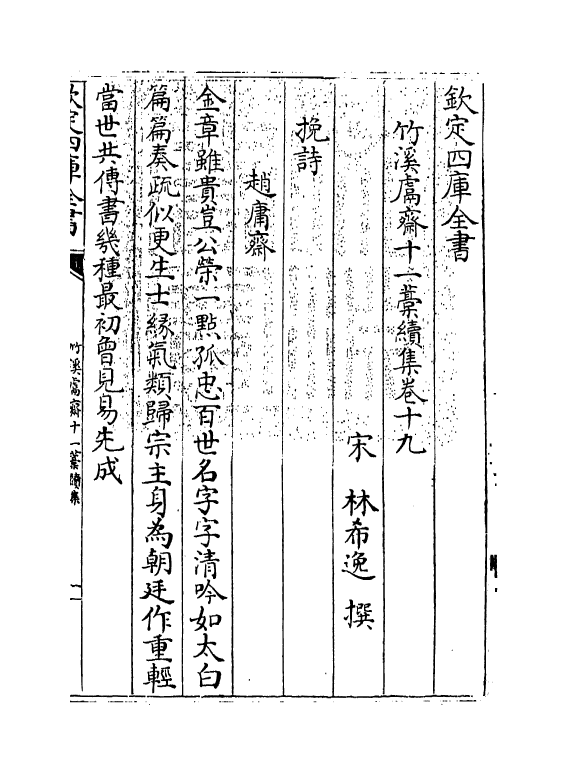 欽定四庫全書
竹溪鬳齋十一藁續集卷十九
宋 林希逸 撰
挽詩
趙庸齋
金章雖貴豈公榮一㸃孤忠百世名字字清吟如太白
篇篇奏疏似更生士縁氣類歸宗主身為朝廷作重輕
當世共傳書幾種最初曾見易先成
欽定四庫全書
竹溪鬳齋十一藁續集
一